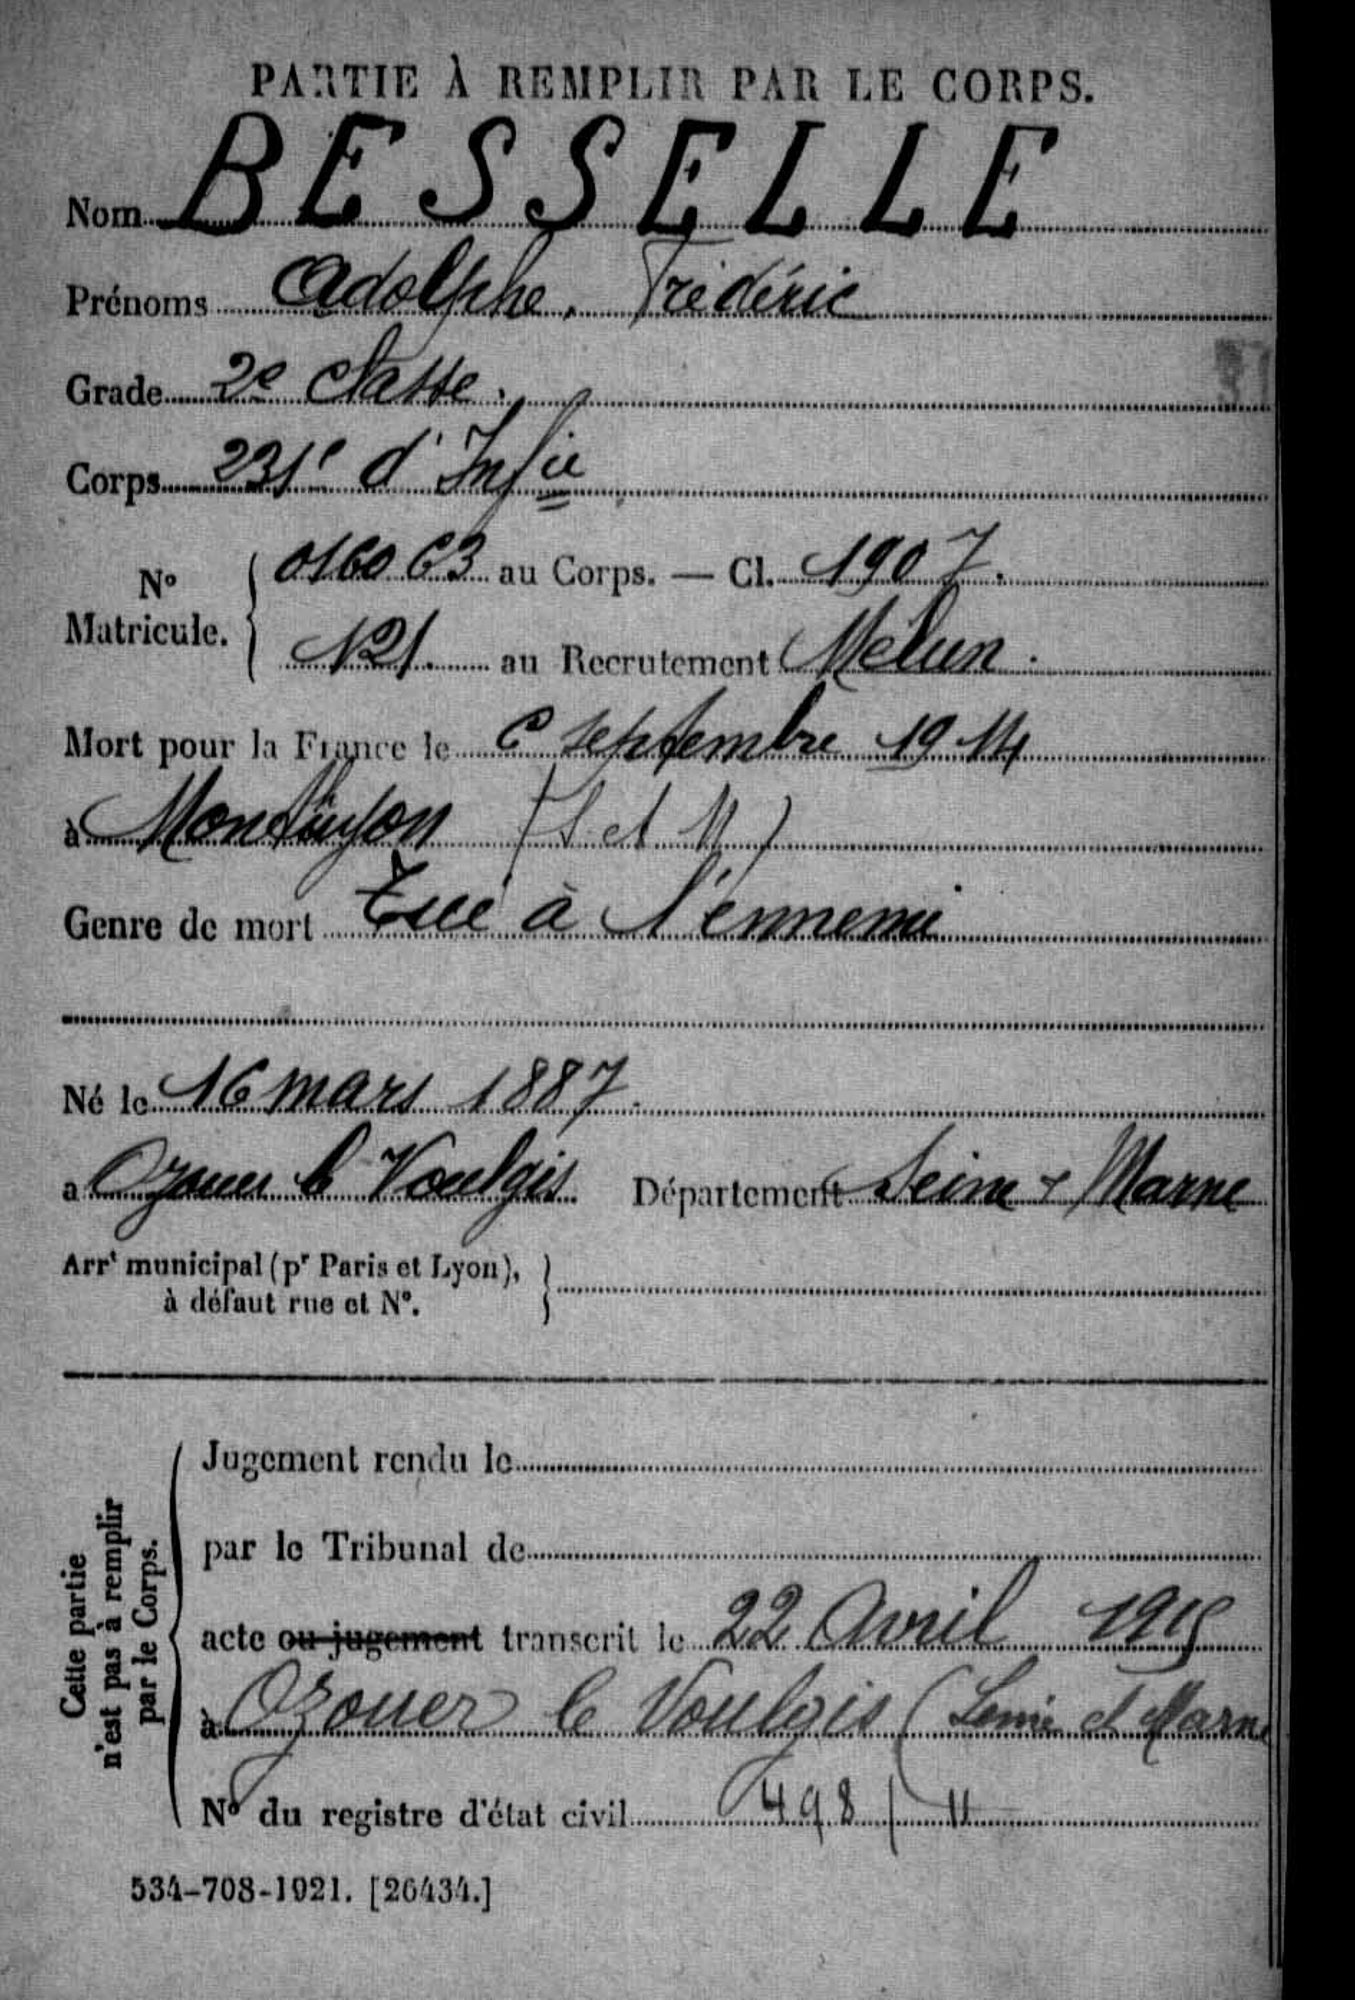 PARTIE À REMPLIR PAR LE CORPS.
Nom BESSELLE
Prénoms Adolphe, Frédéric
Grade 2e classe.
Corps 231e d'Infie
No Matricule. { 016063 au Corps. — Cl. 1907.
121 au Recrutement Melun.
Mort pour la France le 6 septembre 1914
à Monthyon (S. et M)
Genre de mort Tué à l'ennemi
Né le 16 mars 1887.
a Ozouer le Voulgis Département Seine & Marne
Arrt municipal (pr Paris et Lyon),
à défaut rue et No.
Cette partie
n'est pas à remplir
par le Corps.
Jugement rendu le
par le Tribunal de
acte ou jugement transcrit le 22 Avril 1915
à Ozouer le Voulgis (Seine et Marne
No du registre d'état civil 498/11
534-708-1921. [26434.]